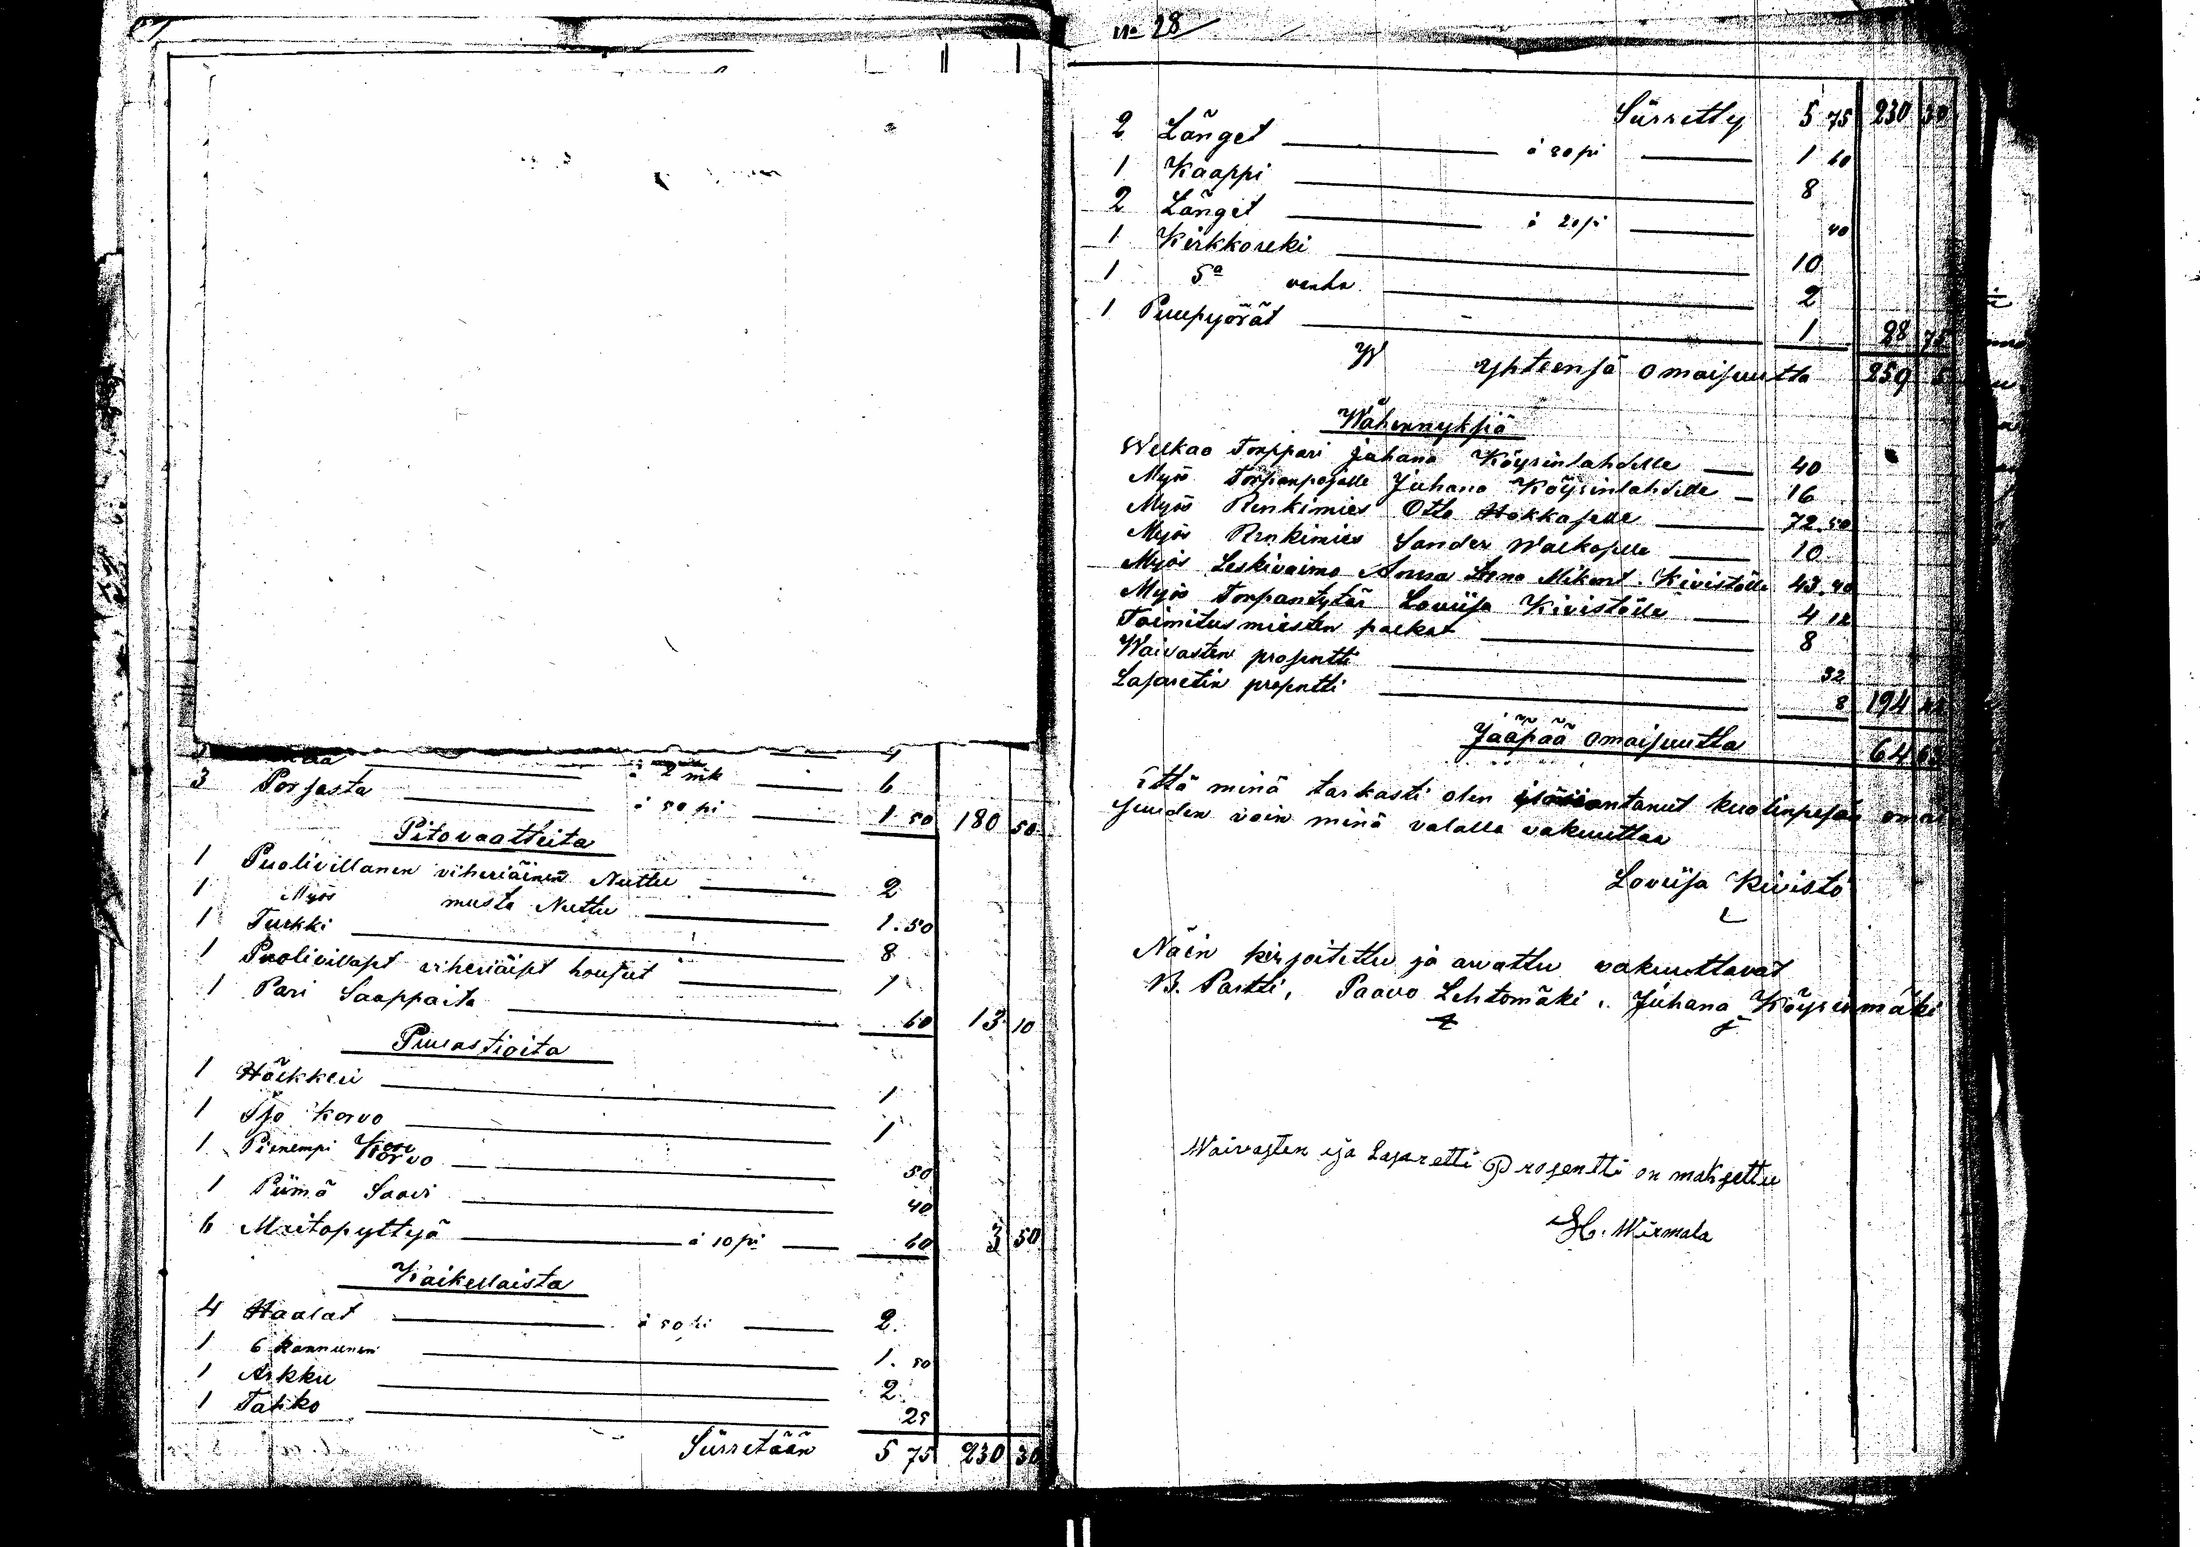 à 2 mk 6
3 Porsasta à 50 pi 1 50 180 50
Pitovaatteita
1 Puolivillanen viheriäinen Nuttu 2
1 Myös musta Nuttu 1.50
1 Turkki 8
1 Puolivillaset viheriäiset housut 1
1 Pari Saappaita 60 13 10
Puuastioita
1 Häkkeri 1
1 Iso Korvo 1
1 Pienempi Korvo 50
1 Piimä Saavi 40
6 Maitopyttyä à 10 pi 60 3 50
Kaikellaista
4 Haalat à 50 pi 2.
1 6 kannunen 1.50
1 Arkku 2
1 Tahko 25
Siirretään 5 75 230 30
No 28
Siirretty 5 75 230 30
2 Länget à 80 pi 1 60
1 Kaappi 8
2 Länget à 20 pi 40
1 Kirkkoreki 10
1 vanha 2
1 Puupyörät 1 28 75
Yhteensä omaisuutta 259 5
Wähennyksiä
Welkaa Torppari Juhana Köysinlahdelle 40
Myös Torpanpojalle Juhana Köysinlahdelle 16
Myös Renkimies Otto Hokkaselle 72.50
Myös Renkimies Sander Walkaselle 10
Myös Leskivaimo Anna Leena Mikont. Kivistölle 43.40
Myös Torpantytär Loviisa Kivistölle 4 12
Toimitusmiesten palkat 8
Waivasten prosentti 32
Lasaretin prosentti 8 194 42
Jääpää omaisuutta 64 63
Että minä tarkasti olen ilmiantanut kuolinpesän omai
suuden voin minä valalla vakuuttaa
Loviisa Kivistö
Näin kirjoitettu ja arvattu vakuuttavat
B. Partti, Paavo Lehtomäki, Juhana Köysinmäki
Waivasten ja Lasaretti Prosentti on maksettu
H. Wirmala